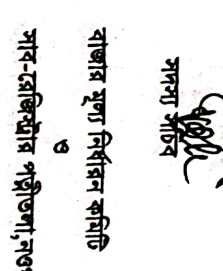 সদস্য সচিব
বাজার মূল্য নির্ধারন কমিটি
ও
সাব-রেজিস্ট্রার